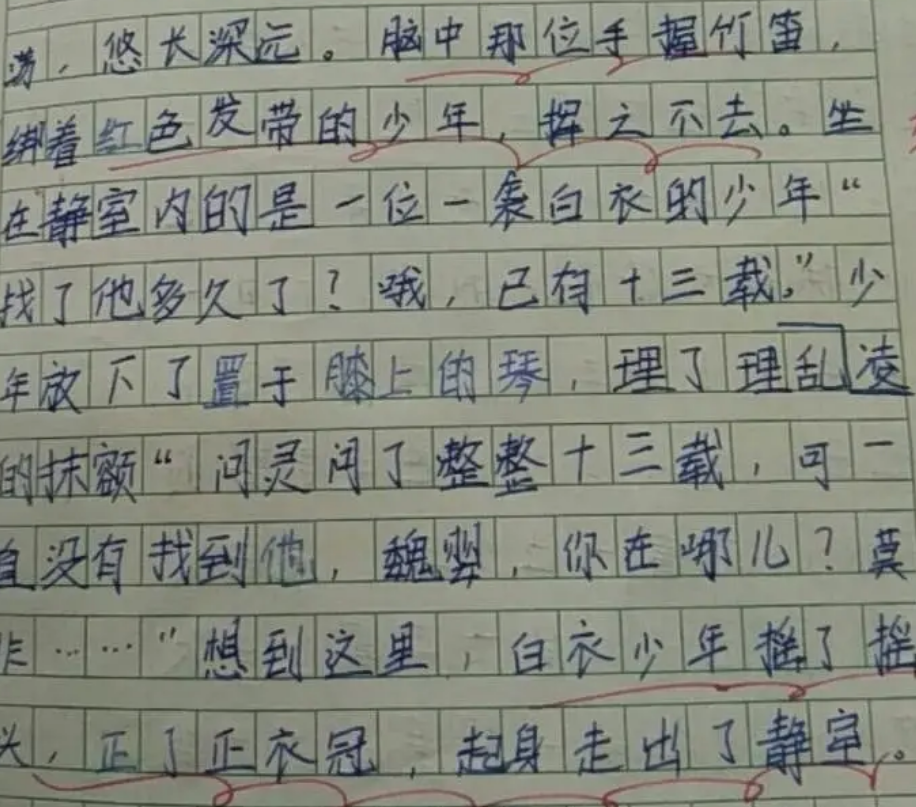 荡，悠长深远。脑中那位手握竹笛，
绑着红色发带的少年，挥之不去。坐
在静室内的是一位一袭白衣的少年“
找了他多久了？哦，已有十三载。”少
年放下了置于膝上的琴，理了理乱凌
的抹额“问灵问了整整十三载，可一
直没有找到他，魏婴，你在哪儿？莫
非……”想到这里，白衣少年摇了摇
头，正了正衣冠，起身走出了静室。